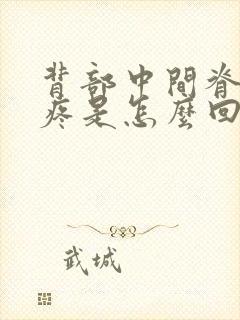 背部中間脊
疼是怎麼回
武城